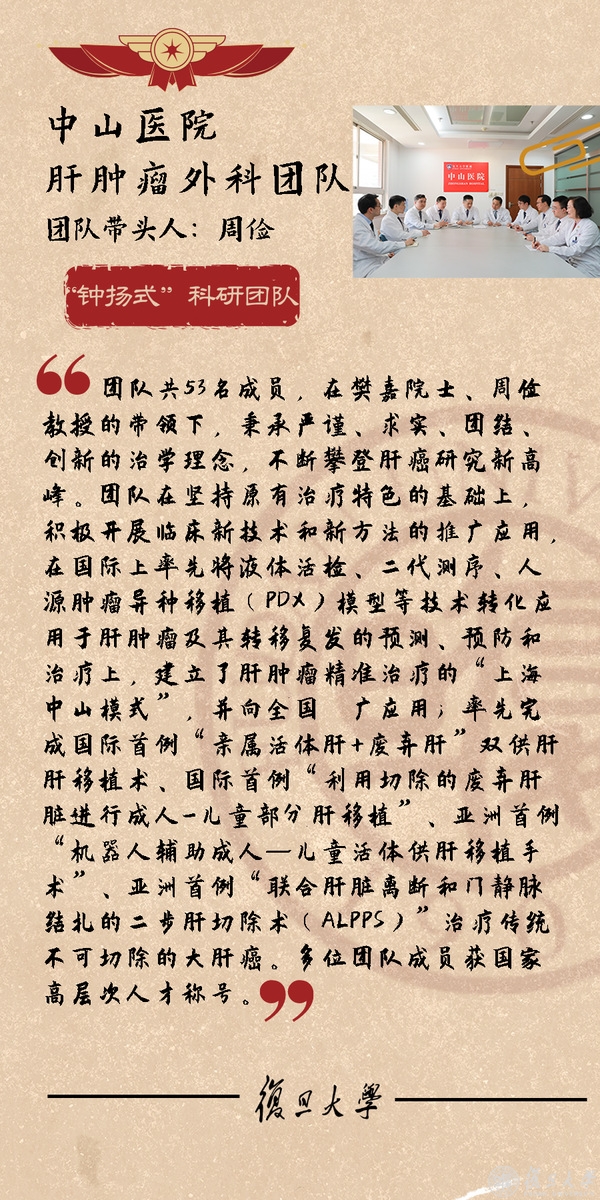 中山医院
肝肿瘤外科团队
团队带头人：周俭
中山医院
ZHONGSHAN HOSPITAL
“钟扬式”科研团队
“
团队共53名成员，在樊嘉院士、周俭
教授的带领下，秉承严谨、求实、团结、
创新的治学理念，不断攀登肝癌研究新高
峰。团队在坚持原有治疗特色的基础上，
积极开展临床新技术和新方法的推广应用，
在国际上率先将液体活检、二代测序、人
源肿瘤异种移植（PDX）模型等技术转化应
用于肝肿瘤及其转移复发的预测、预防和
治疗上，建立了肝肿瘤精准治疗的“上海
中山模式”，并向全国 广应用；率先完
成国际首例“亲属活体肝+废弃肝”双供肝
肝移植术、国际首例“利用切除的废弃肝
脏进行成人-儿童部分肝移植”、亚洲首例
“机器人辅助成人—儿童活体供肝移植手
术”、亚洲首例“联合肝脏离断和门静脉
结扎的二步肝切除术（ALPPS）”治疗传统
不可切除的大肝癌。多位团队成员获国家
高层次人才称号。
”
復旦大學